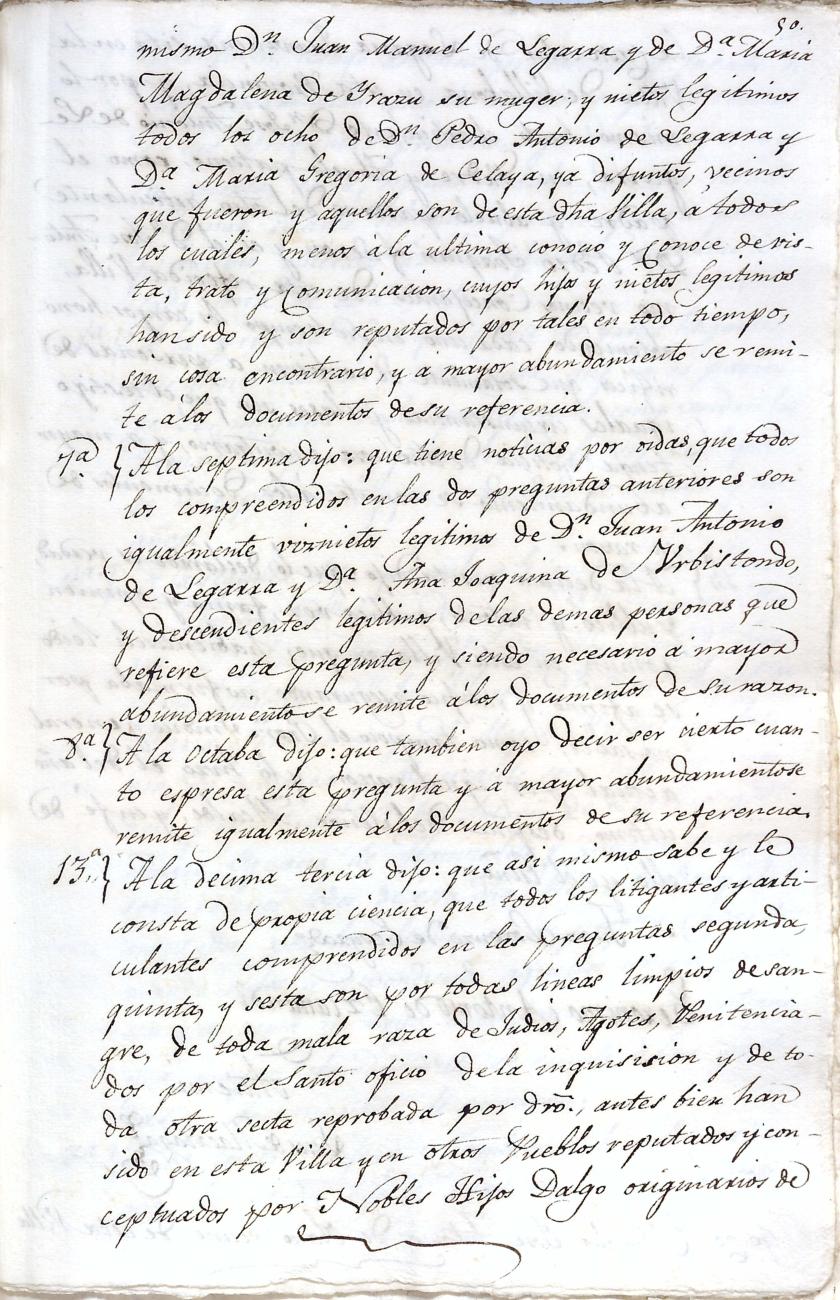 50.
mismo Dn. Juan Manuel de Legarra y de Da. Maria
Magdalena de Yrazu su muger, y nietos legitimos
todos los ocho de Dn. Pedro Antonio de Legarra y
Da. Maria Gregoria de Celaya, ya difuntos, vecinos
que fueron y aquellos son de esta dha Villa, á todos
los cuales, menos á la ultima conoció y conoce de vis-
ta, trato y comunicacion, cuyos hijos y nietos legitimos
han sido y son reputados por tales en todo tiempo,
sin cosa encontrario, y á mayor abundamiento se remi-
te á los documentos de su referencia.
7a. } A la septima dijo: que tiene noticias por oidas, que todos
los compreendidos en las dos preguntas anteriores son
igualmente viznietos legitimos de Dn. Juan Antonio
de Legarra y Da. Ana Joaquina de Urbistondo,
y descendientes legitimos de las demas personas que
refiere esta pregunta, y siendo necesario á mayor
abundamiento se remite á los documentos de su razon.
8a. } A la octaba dijo: que tambien oyo decir ser cierto cuan-
to espresa esta pregunta y á mayor abundamiento se
remite igualmente á los documentos de su referencia.
13.a } A la decima tercia dijo: que asi mismo sabe y le
consta de propia ciencia, que todos los litigantes y arti-
culantes comprendidos en las preguntas segunda,
quinta, y sesta son por todas lineas limpios de san-
gre, de toda mala raza de Judios, Agotes, Penitencia-
dos por el Santo oficio de la inquisision y de to-
da otra secta reprobada por dro., antes bien han
sido en esta Villa y en otros Pueblos reputados y con-
ceptuados por Nobles Hijos Dalgo originarios de